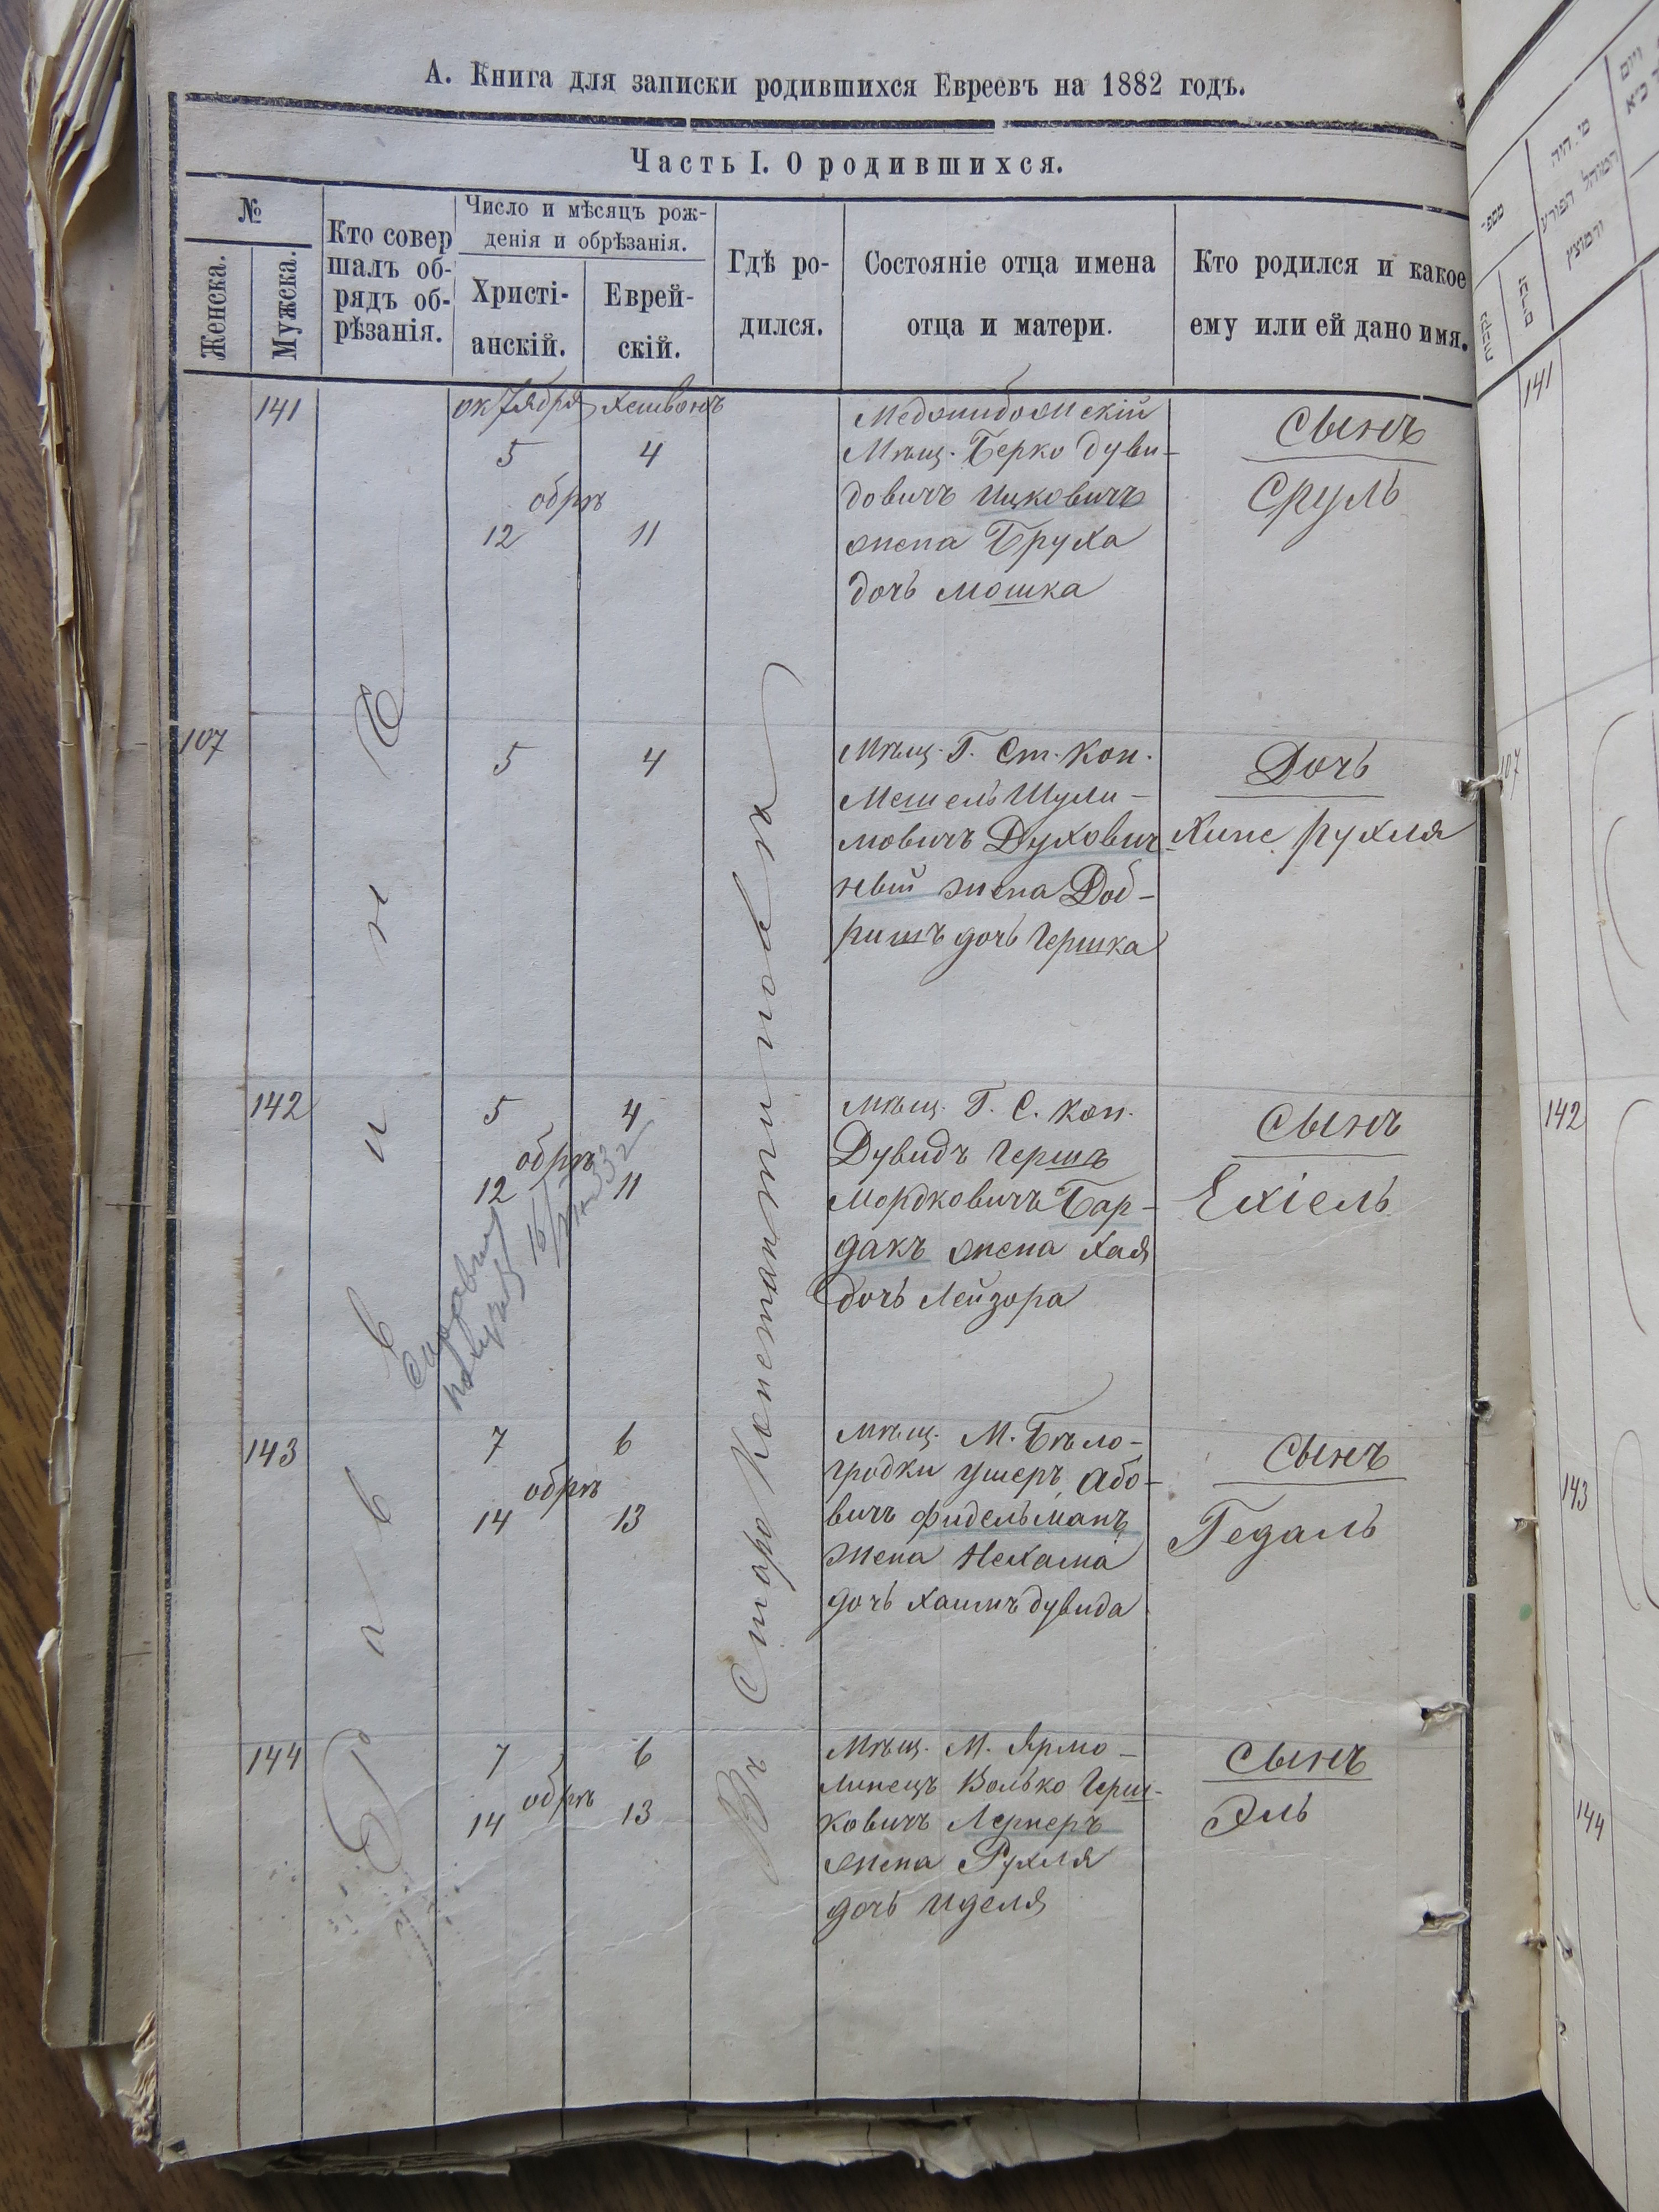 А. Книга для записки родившихся Евреевъ на 1882 годъ.
Часть I. О родившихся.
№
Женска.
Мужска.
Кто совер
шалъ об-
рядъ об-
рѣзанія.
Число и мѣсяцъ рож-
денія и обрѣзанія.
Христі-
анскій.
Еврей-
скій.
Гдѣ ро-
дился.
Состояніе отца имена
отца и матери.
Кто родился и какое
ему или ей дано имя.
Раввинъ
Въ Старо Константиновѣ
141
октября Хешвонъ
5 4
обрѣ
12 11
Меджибожскій
Мѣщ. Берко Дуви-
довичъ Ицковичъ
жена Бруха
дочь Мошка
Сынъ
Сруль
107
5 4
Мѣщ. Г. Ст. Кон.
Мешель Шули-
мовичъ Духович-
ный жена Доб-
ришъ дочь Гершка
Дочь
Хипе Рухля
142
5 4
обрѣ
12 11
Мѣщ. Г. С. Кон.
Дувидъ Гершъ
Мордковичъ Бар-
дакъ жена Хая
дочь Лейзора
Сынъ
Ехіель
143
7 6
обрѣ
14 13
Мѣщ. М. Бѣло-
гродки Ушеръ Або-
вичъ Фидельманъ
жена Нехама
дочь Хаимъ Дувида
Сынъ
Гедаль
144
7 6
обрѣ
14 13
Мѣщ. М. Ярмо-
линецъ Волько Герш-
ковичъ Лернеръ
жена Рухля
дочь Иделя
Сынъ
Эль
141
107
142
143
144